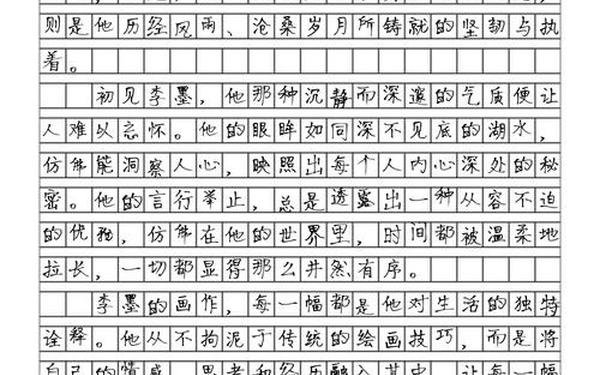 则是他历经风雨、沧桑岁月所铸就的坚韧与执
着。
初见李墨，他那种沉静而深邃的气质便让
人难以忘怀。他的眼眸如同深不见底的湖水，
仿佛能洞察人心，映照出每个人内心深处的秘
密。他的言行举止，总是透露出一种从容不迫
的优雅，仿佛在他的世界里，时间都被温柔地
拉长，一切都显得那么井然有序。
李墨的画作，每一幅都是他对生活的独特
诠释。他从不拘泥于传统的绘画技巧，而是将
自己的情感、思考和经历融入其中，让每一幅